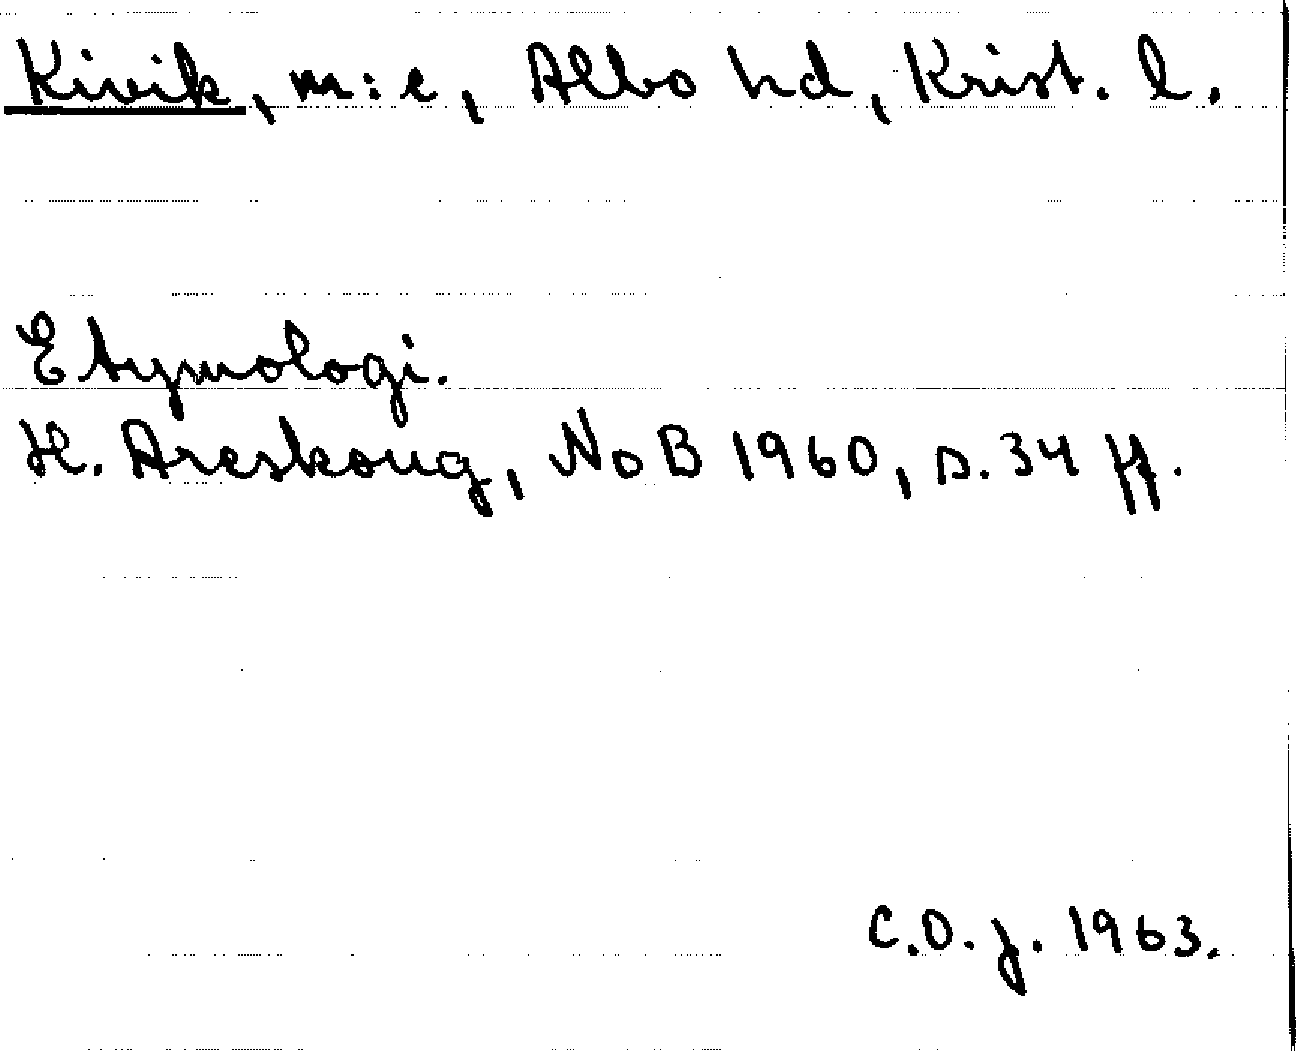 Kivik, m:e, Albo hd, Krist. l.
Etymologi.
H. Areskoug, NoB 1960, s. 34 ff.
C.O.J. 1963.